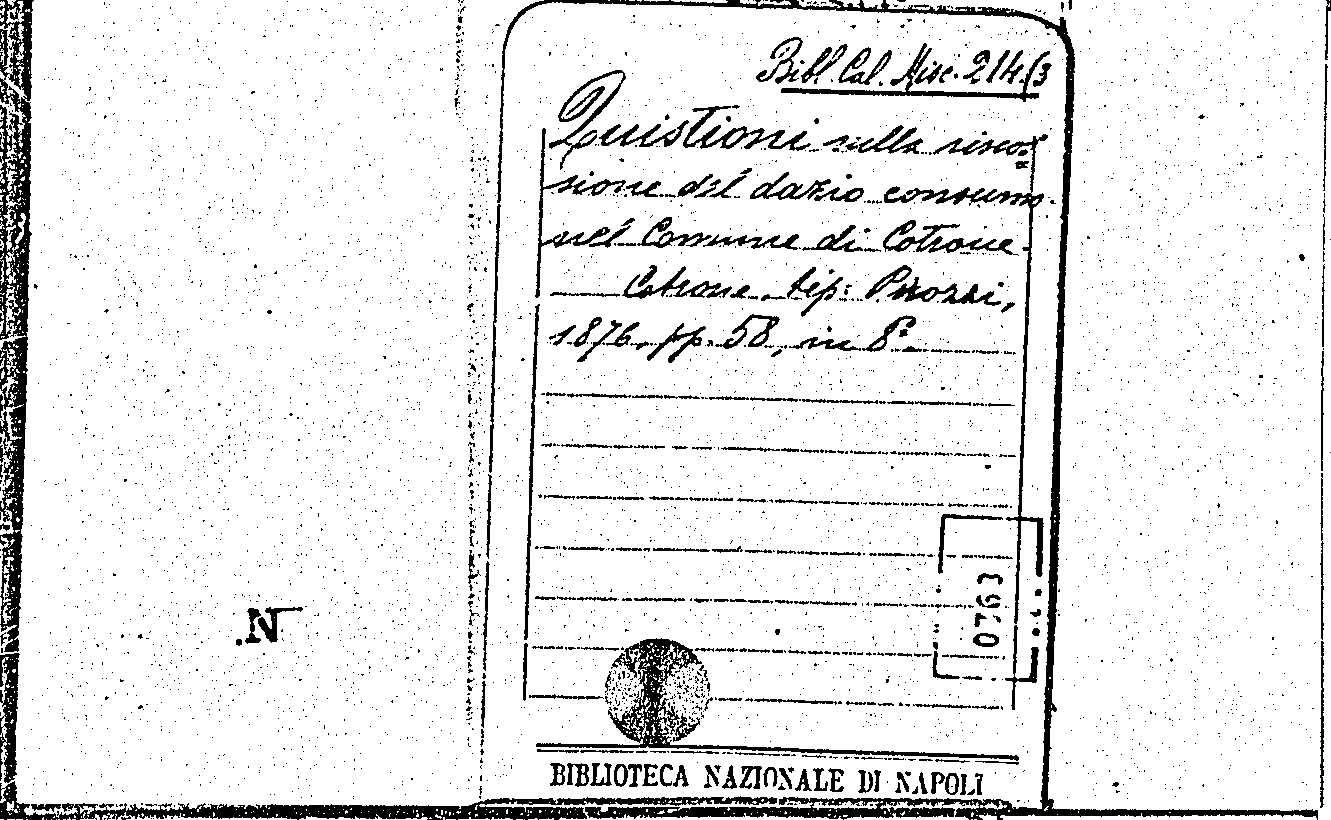 Bibl. Cal. Misc. 214.(3
Quistioni sulla riscos=
sione del dazio consumo
nel Comune di Cotrone.
Cotrone, tip: Pirozzi,
1876, pp. 58, in 8º.
0763
.N
BIBLIOTECA NAZIONALE DI NAPOLI